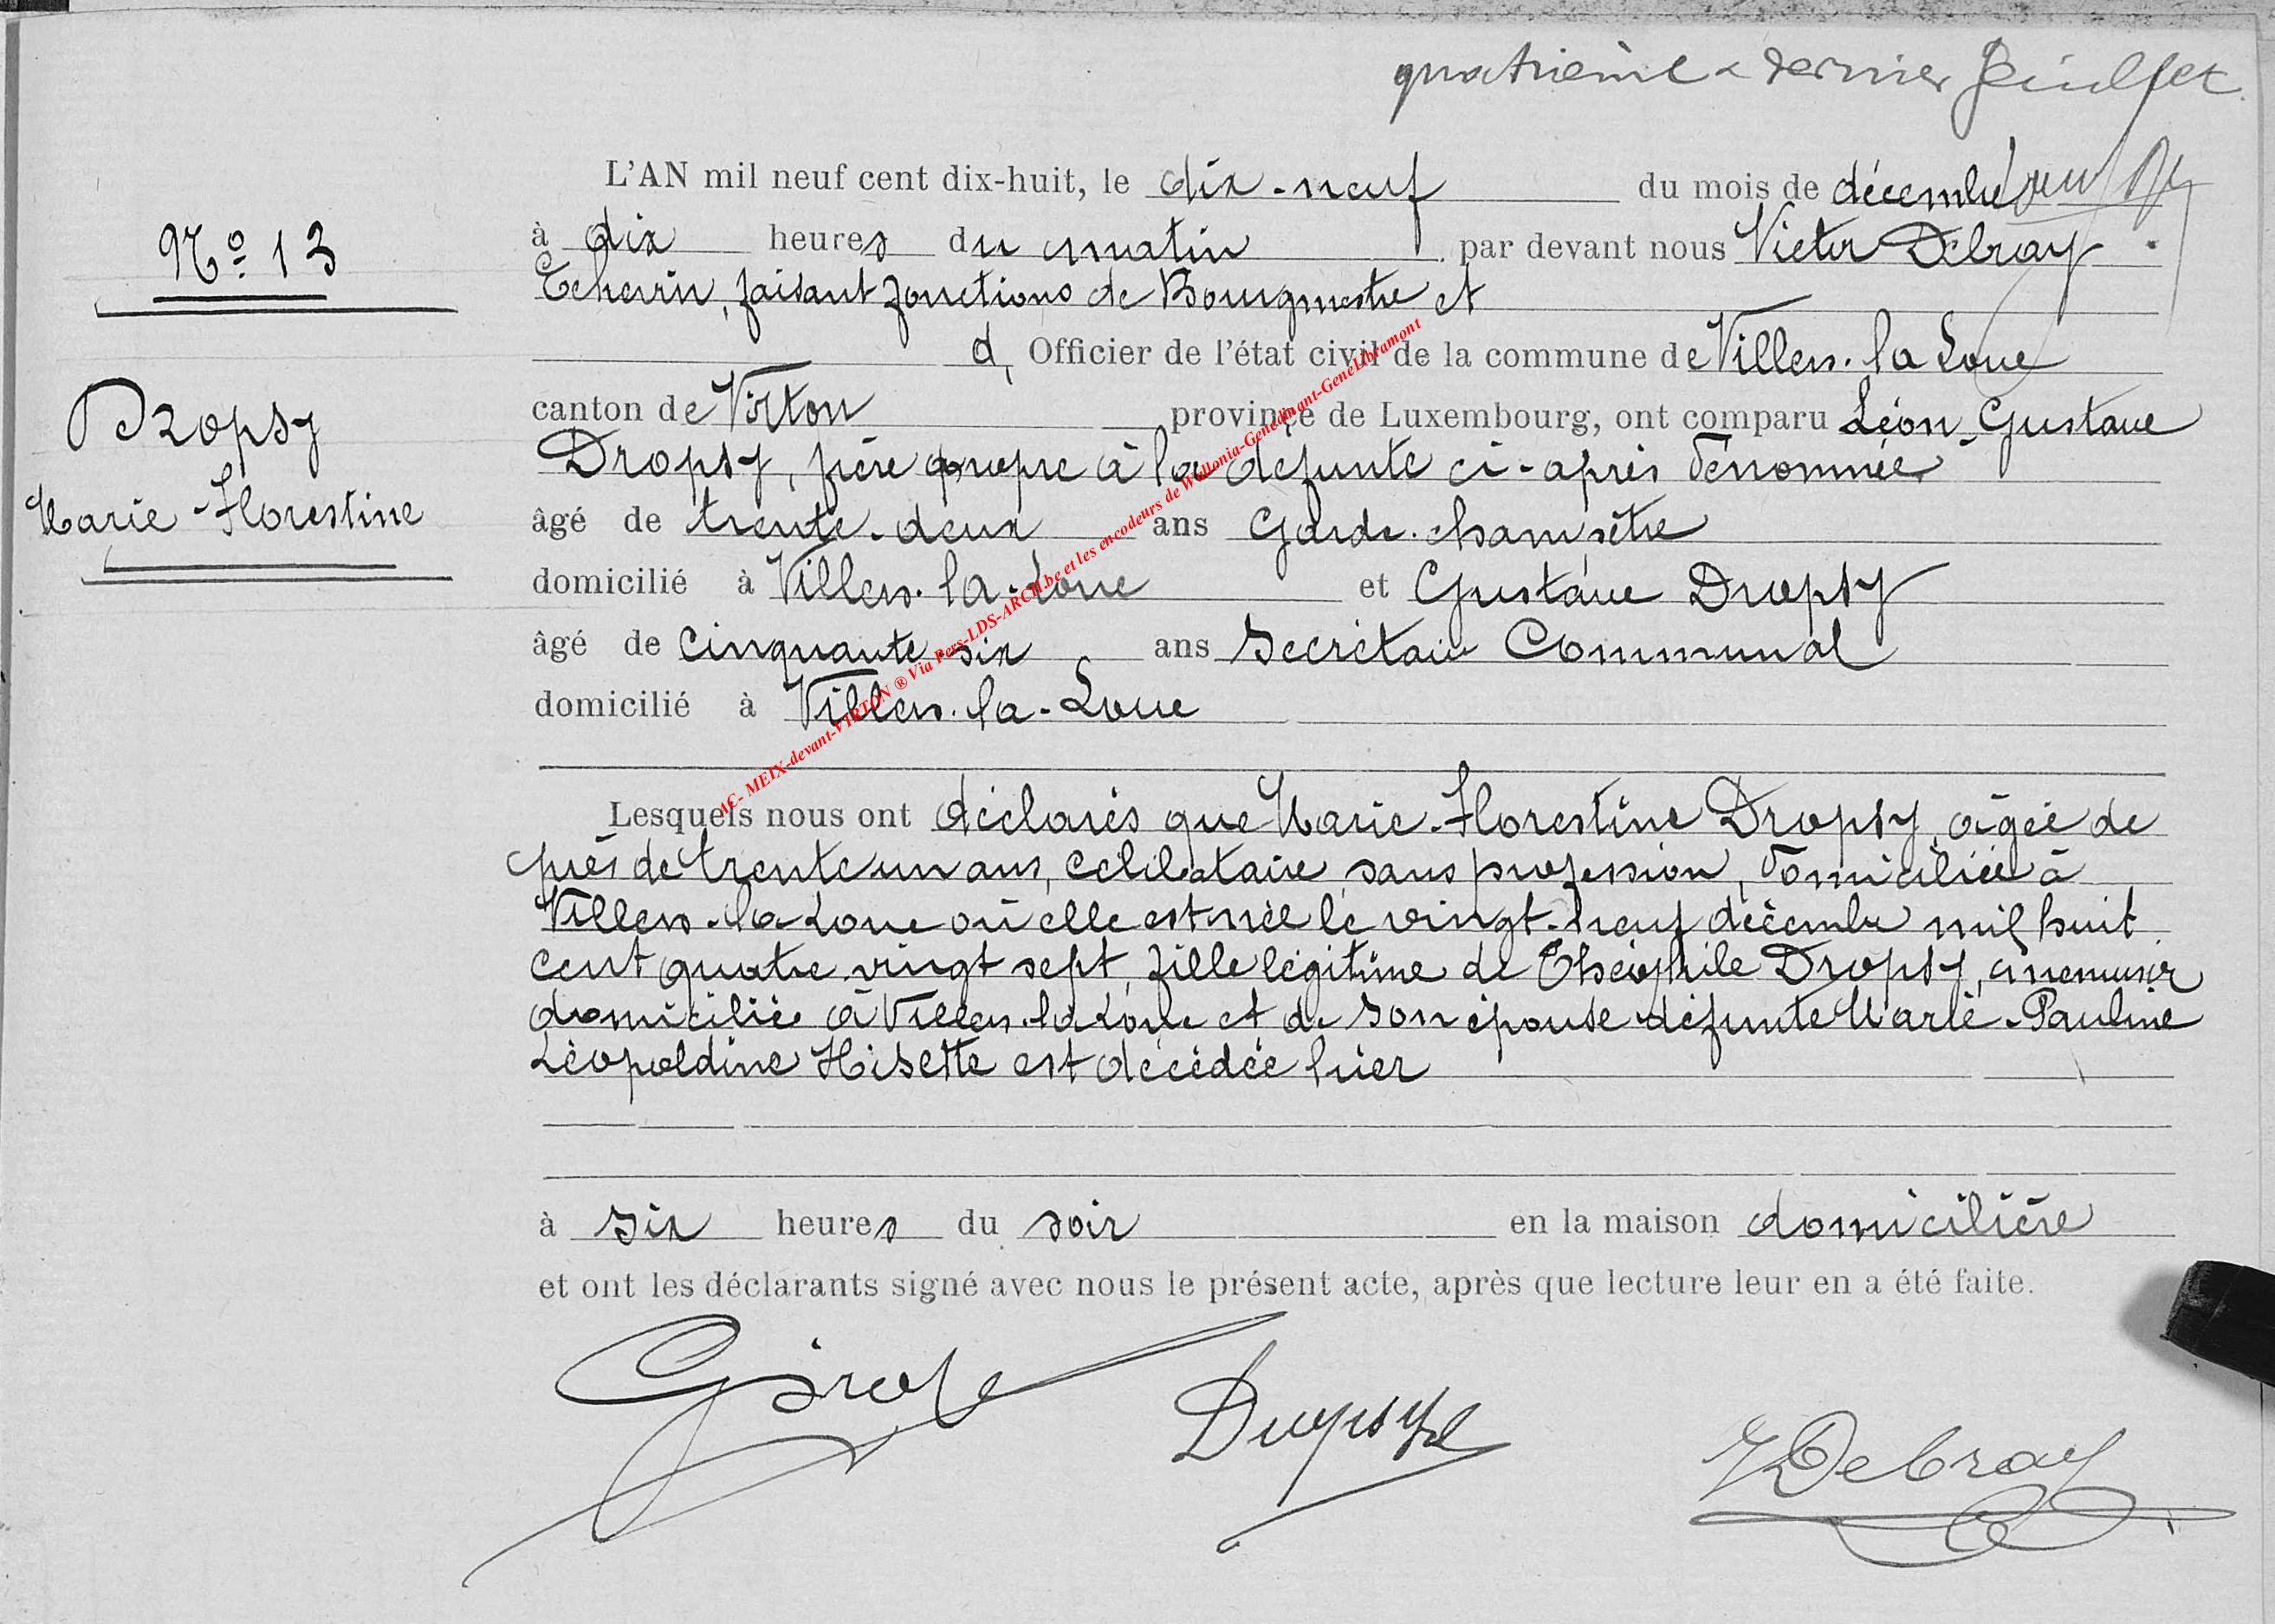 quatrième & dernier feuillet.
L'AN mil neuf cent dix-huit, le dix-neuf du mois de décembre
N° 13
à dix heures du matin par devant nous Victor Debray
Echevin, faisant fonctions de Bourgmestre et
d, Officier de l'état civil de la commune de Villers-la-Loue
Dropsy
canton de Virton province de Luxembourg, ont comparu Léon-Gustave
Dropsy, frère propre à la défunte ci-après dénommée
Marie-Florestine
âgé de trente-deux ans Garde-champêtre
domicilié à Villers-la-Loue et Gustave Dropsy
âgé de cinquante-six ans Secrétaire Communal
domicilié à Villers-la-Loue
AC- MEIX-devant-VIRTON ® Via Pers-LDS-ARCH.be et les encodeurs de Wallonia-Genedinant-GeneLibramont
Lesquels nous ont déclarés que Marie-Florestine Dropsy, âgée de
près de trente un ans, célibataire, sans profession, domiciliée à
Villers-la-Loue où elle est née le vingt-neuf décembre mil huit
cent quatre vingt sept, fille légitime de Théophile Dropsy,
domicilié à Villers-la-Loue et de son épouse défunte Marie-Pauline
Léopoldine Hisette est décédée hier
à six heures du soir en la maison domicilière
et ont les déclarants signé avec nous le présent acte, après que lecture leur en a été faite.
Dropsy
VDebray